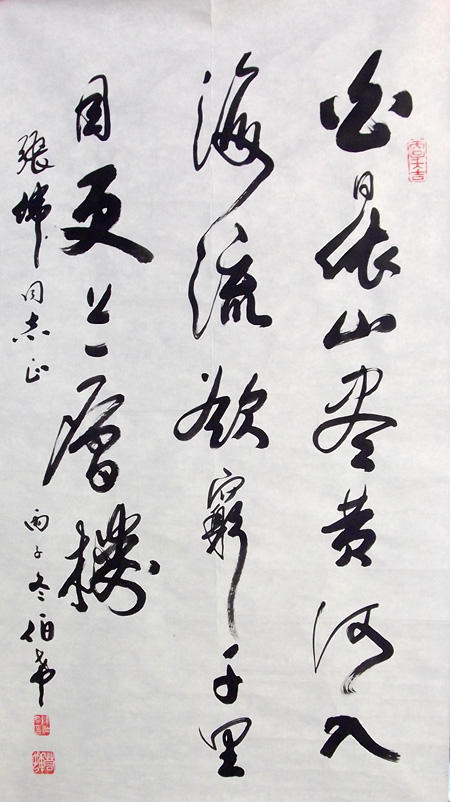 白日依山尽黄河入
海流欲窮千里
目更上一層樓
張同志正
丙子冬伯